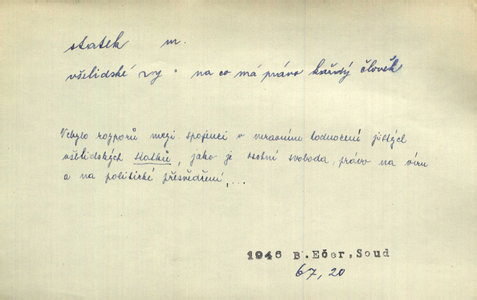 statek m.
všelidské sy · na co má právo každý člověk
Nebylo rozporů mezi spojenci v mravním hodnocení jistých
všelidských statků, jako je osobní svoboda, právo na víru
a na politické přesvědčení,...
1946 B.Ečer, Soud
67, 20